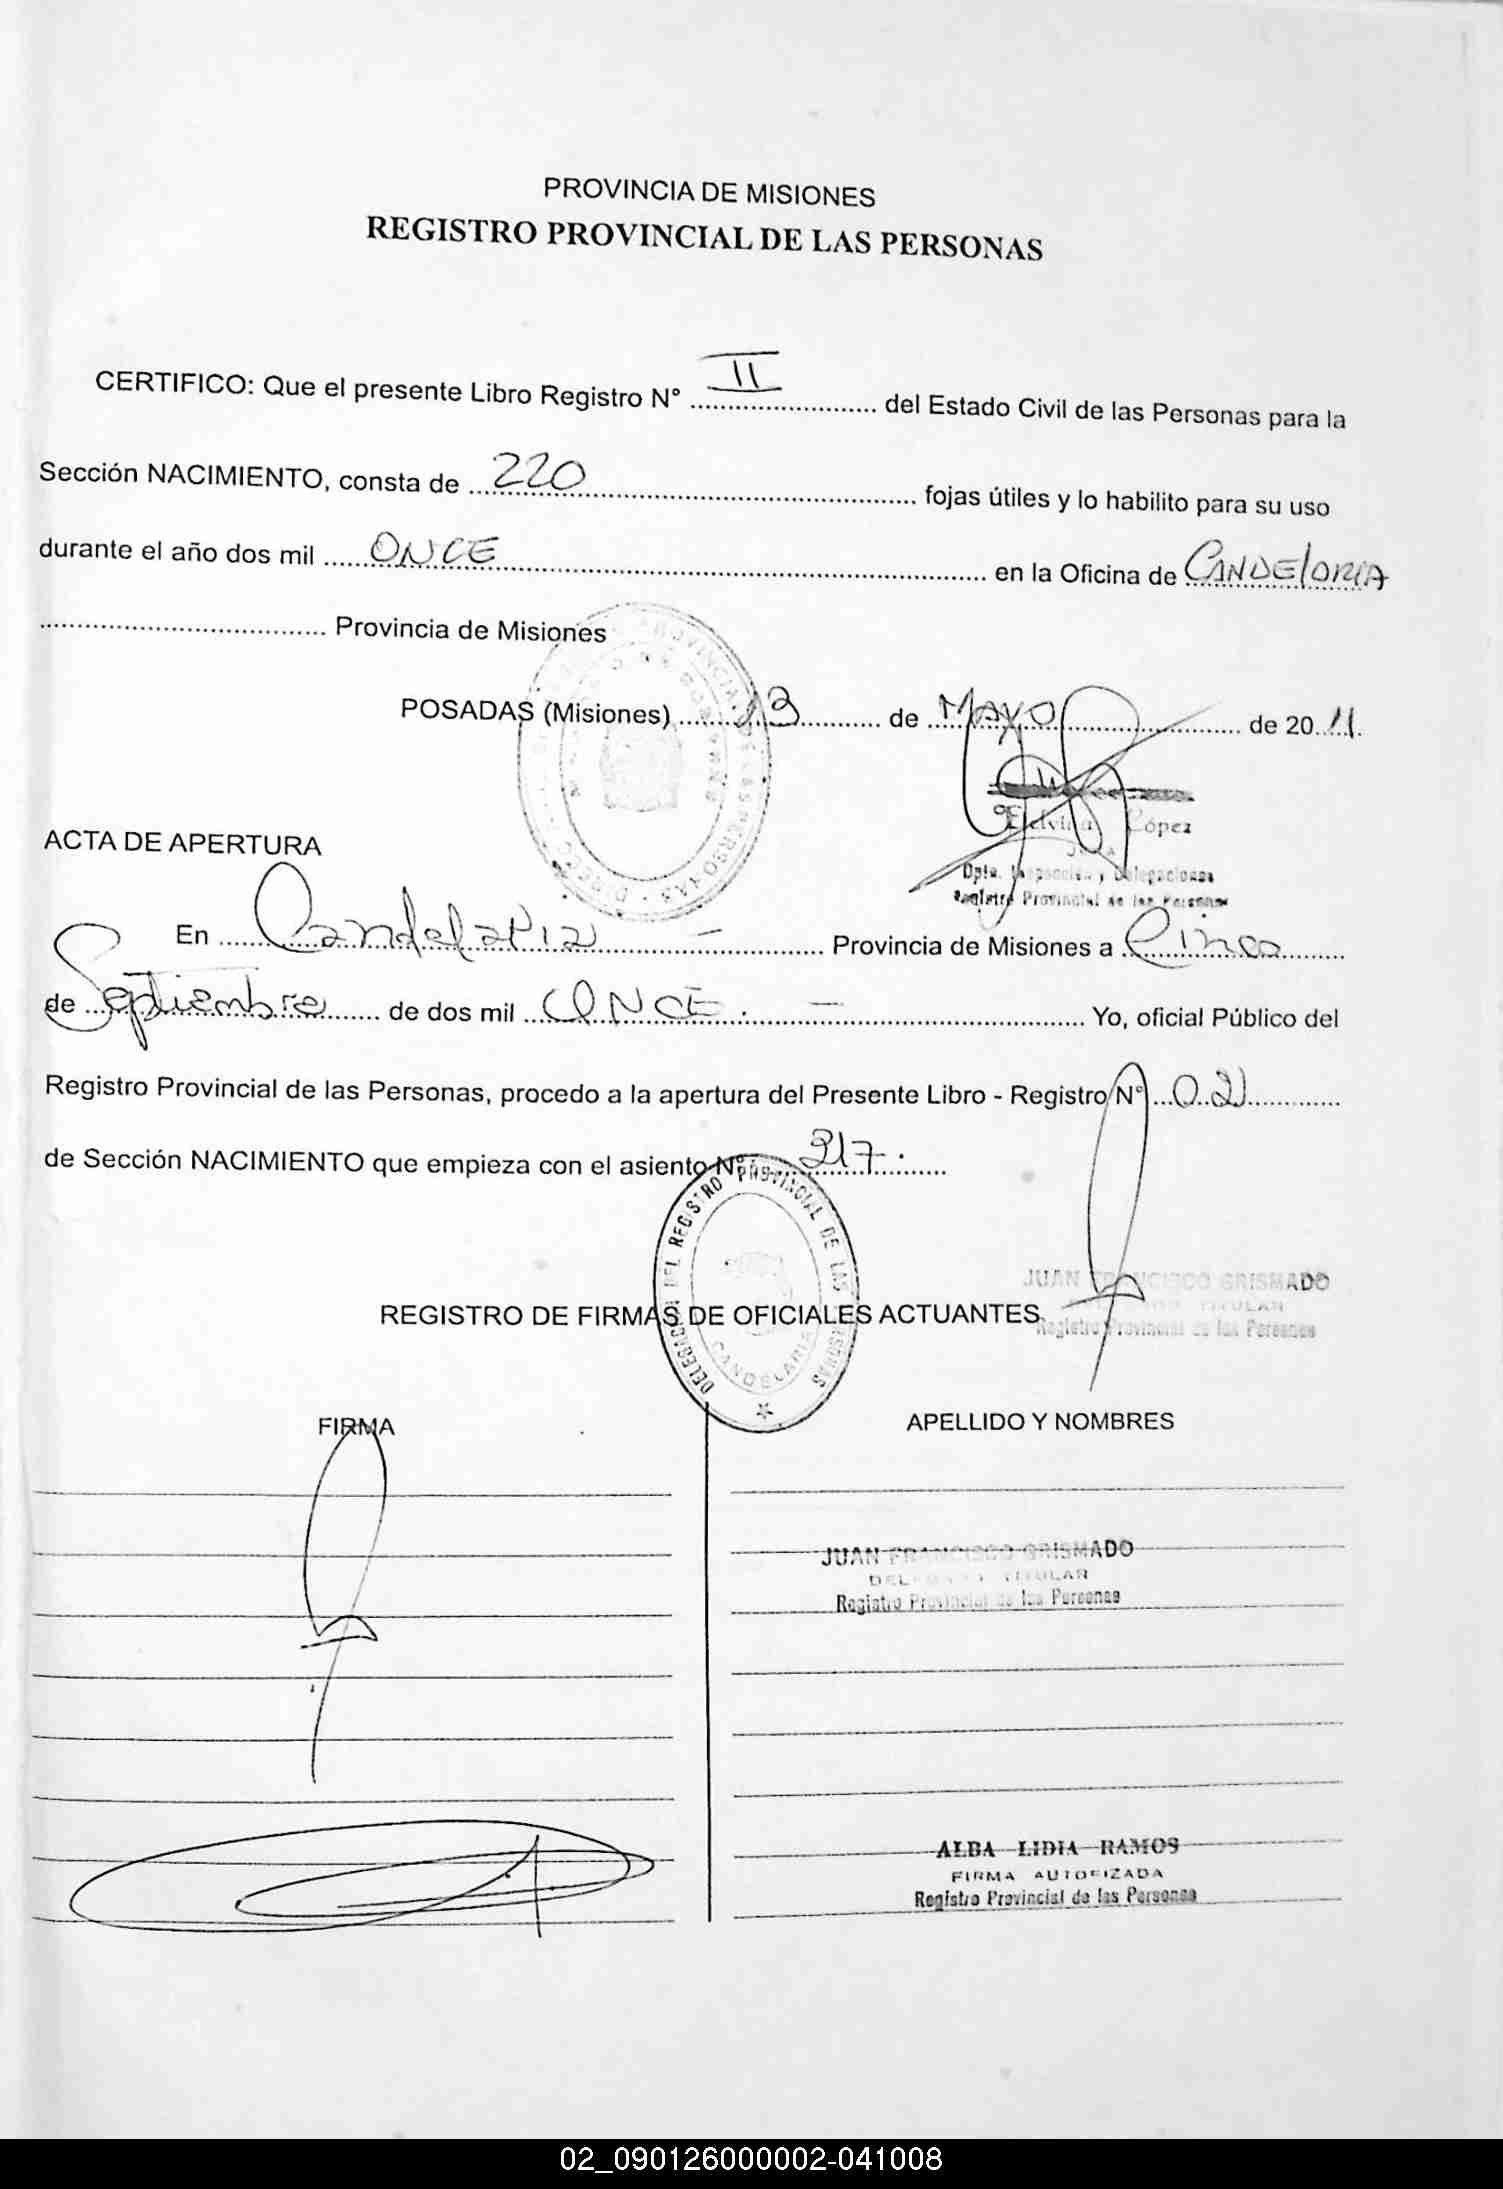 PROVINCIA DE MISIONES
REGISTRO PROVINCIAL DE LAS PERSONAS
CERTIFICO: Que el presente Libro Registro N° II del Estado Civil de las Personas para la
Sección NACIMIENTO, consta de 220 fojas útiles y lo habilito para su uso
durante el año dos mil ONCE en la Oficina de CANDElaRIA
Provincia de Misiones
POSADAS (Misiones) 13 de MAYO de 2011.
López
Dpto. Inspección y Delegaciones
Registro Provincial de las Personas
ACTA DE APERTURA
En Candelaria — Provincia de Misiones a Cinco
de Septiembre de dos mil ONCE. — Yo, oficial Público del
Registro Provincial de las Personas, procedo a la apertura del Presente Libro - Registro N° 02
de Sección NACIMIENTO que empieza con el asiento N° 217.
DELEGACION DEL REGISTRO PROVINCIAL DE LAS PERSONAS
CANDELARIA
JUAN FRANCISCO GRISMADO
DELEGADO TITULAR
Registro Provincial de las Personas
REGISTRO DE FIRMAS DE OFICIALES ACTUANTES
FIRMA APELLIDO Y NOMBRES
JUAN FRANCISCO GRISMADO
DELEGADO TITULAR
Registro Provincial de las Personas
ALBA LIDIA RAMOS
FIRMA AUTORIZADA
Registro Provincial de las Personas
02_090126000002-041008